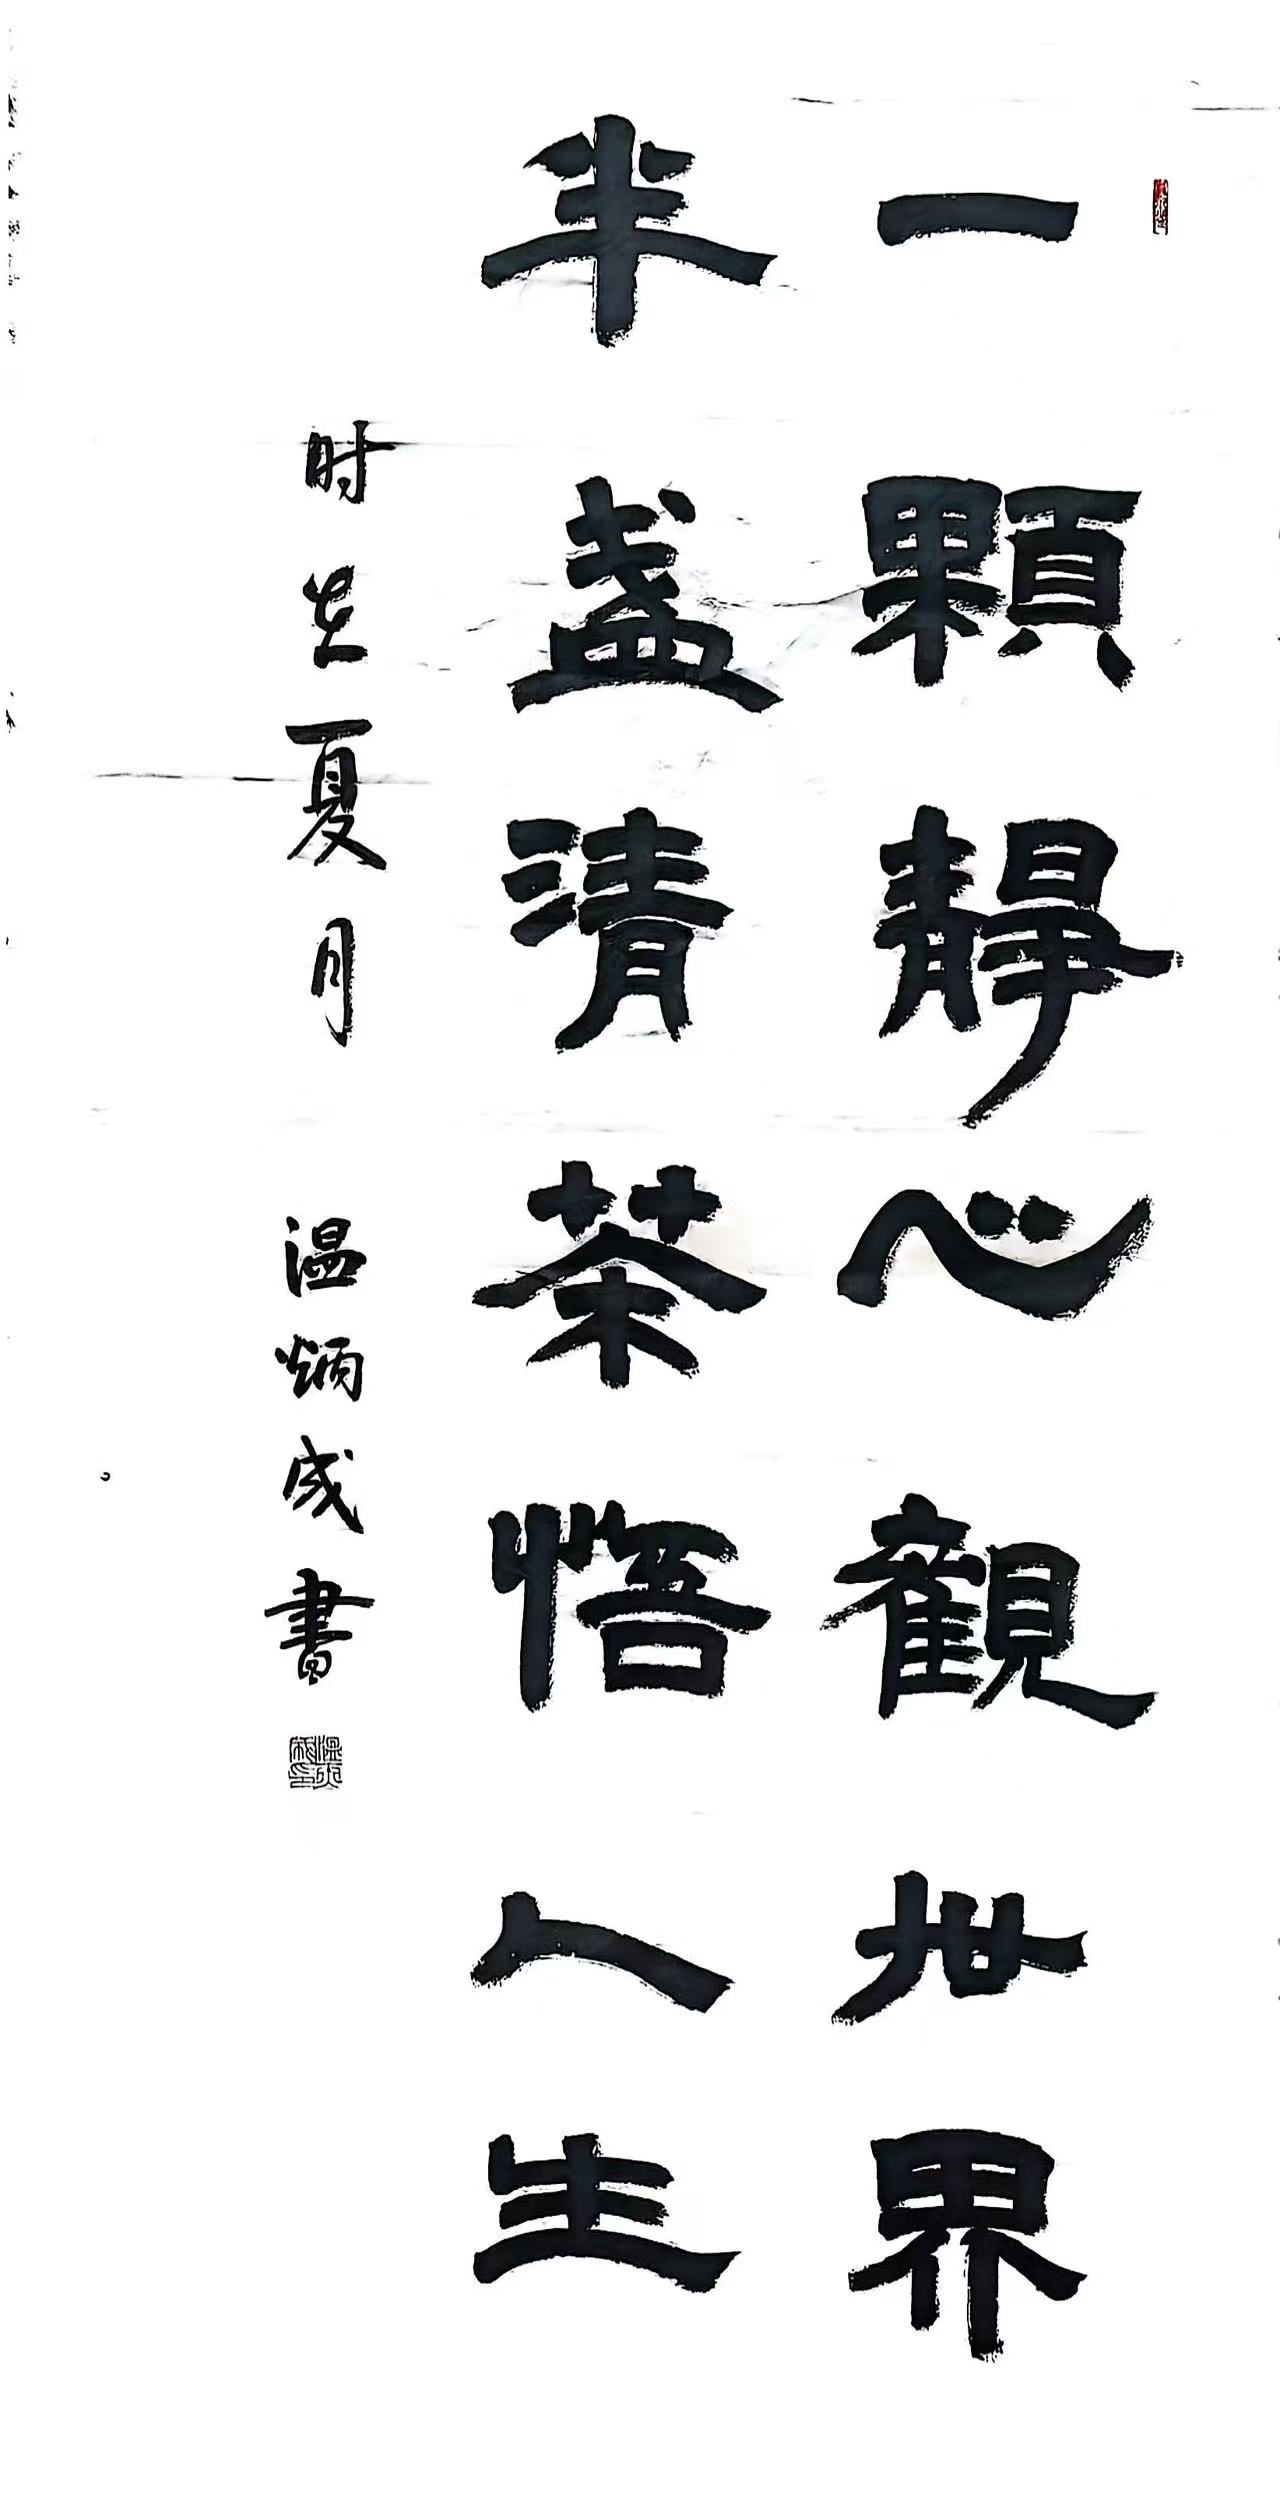 一顆靜心觀世界
半盞清茶悟人生
时在夏月 温炳成書